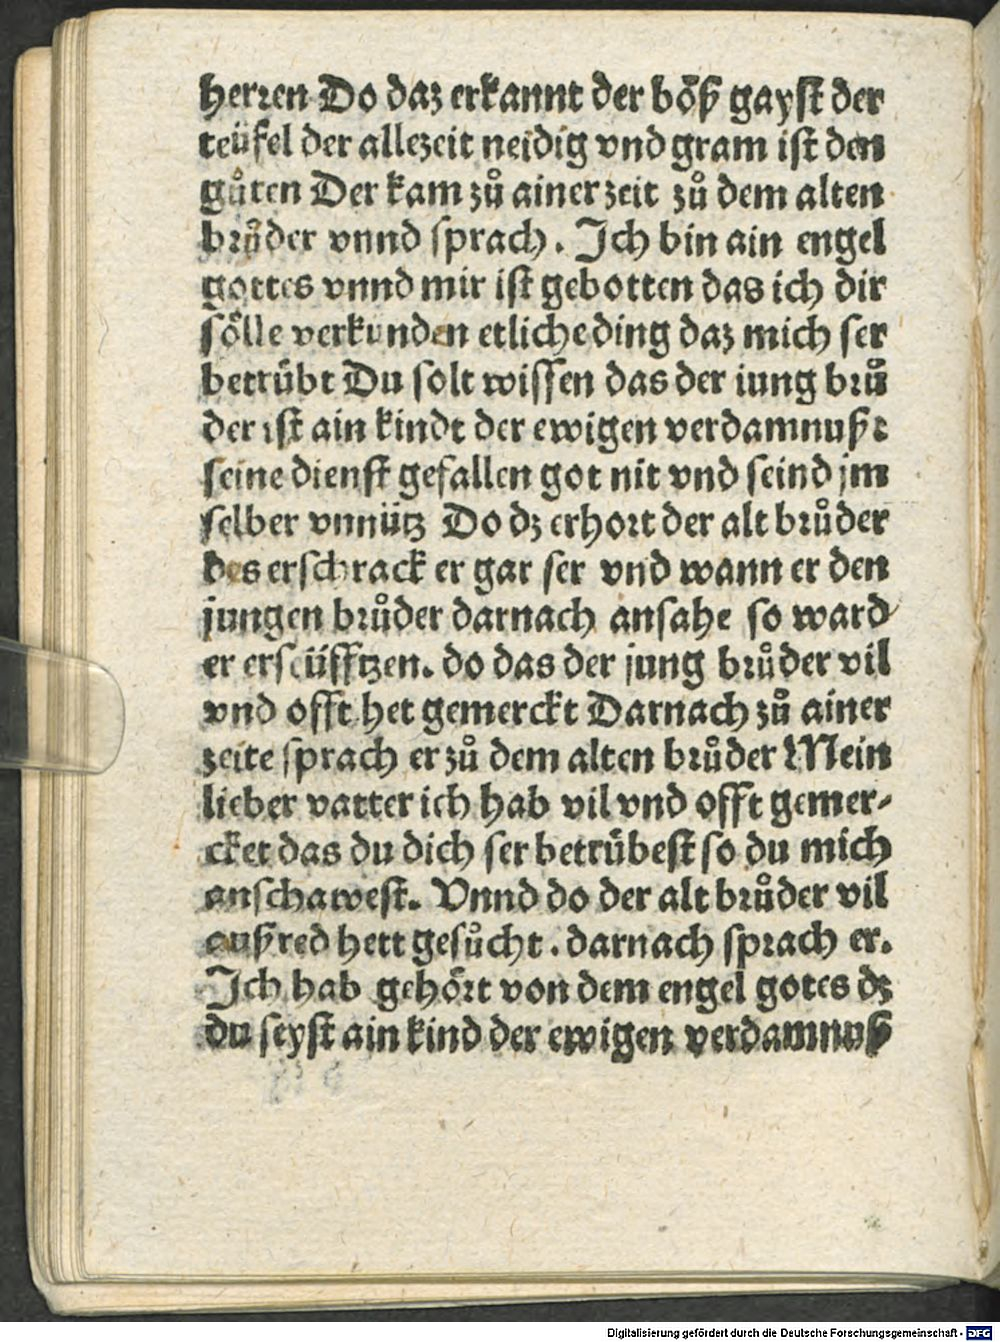 herren Do daz erkannt der böß gayst der
teüfel der allezeit neidig vnd gram ist den
gůten Der kam zů ainer zeit zů dem alten
brůder vnnd sprach. Jch bin ain engel
gottes vnnd mir ist gebotten das ich dir
sölle verkunden etliche ding daz mich ser
betrübt Du solt wissen das der iung brů
der ist ain kindt der ewigen verdamnuß:
seine dienst gefallen got nit vnd seind jm
selber vnnütz Do dz erhort der alt brůder
des erschrack er gar ser vnd wann er den
jungen brůder darnach ansahe so ward
er erseüfftzen. do das der jung brůder vil
vnd offt het gemerckt Darnach zů ainer
zeite sprach er zů dem alten brůder Mein
lieber vatter ich hab vil vnd offt gemer-
cket das du dich ser betrübest so du mich
anschawest. Vnnd do der alt brůder vil
außred hett gesůcht. darnach sprach er.
Jch hab gehört von dem engel gotes dz
du seyst ain kind der ewigen verdamnuß
Digitalisierung gefördert durch die Deutsche Forschungsgemeinschaft - DFG